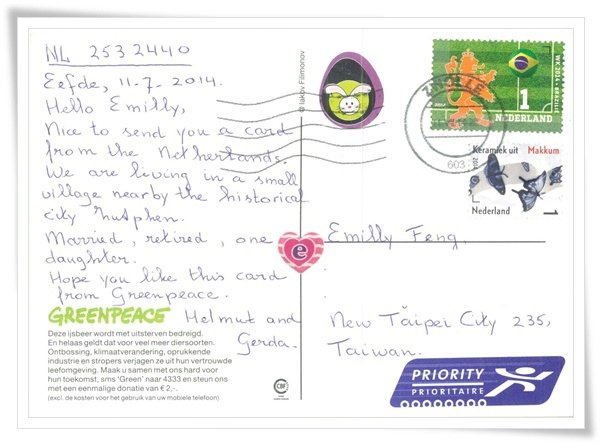 NL 2532440
Eefde, 11-7. 2014.
Hello Emilly,
Nice to send you a card
from the Netherlands.
We are living in a small
village nearby the historical
city Zutphen.
Married, retired, one
daughter.
Hope you like this card
from Greenpeace.
Helmut and
Gerda.
GREENPEACE
Deze ijsbeer wordt met uitsterven bedreigd.
En helaas geldt dat voor veel meer diersoorten.
Ontbossing, klimaatverandering, oprukkende
industrie en stropers verjagen ze uit hun vertrouwde
leefomgeving. Maak u samen met ons hard voor
hun toekomst, sms 'Green' naar 4333 en steun ons
met een eenmalige donatie van € 2,-.
(excl. de kosten voor het gebruik van uw mobiele telefoon)
CBF
© Iakov Filimonov
e
WK 2014 BRAZILIË
2014
1
NEDERLAND
603
Keramiek uit Makkum
Nederland 1
Emilly Feng.
New Taipei City 235,
Taiwan.
PRIORITY
PRIORITAIRE